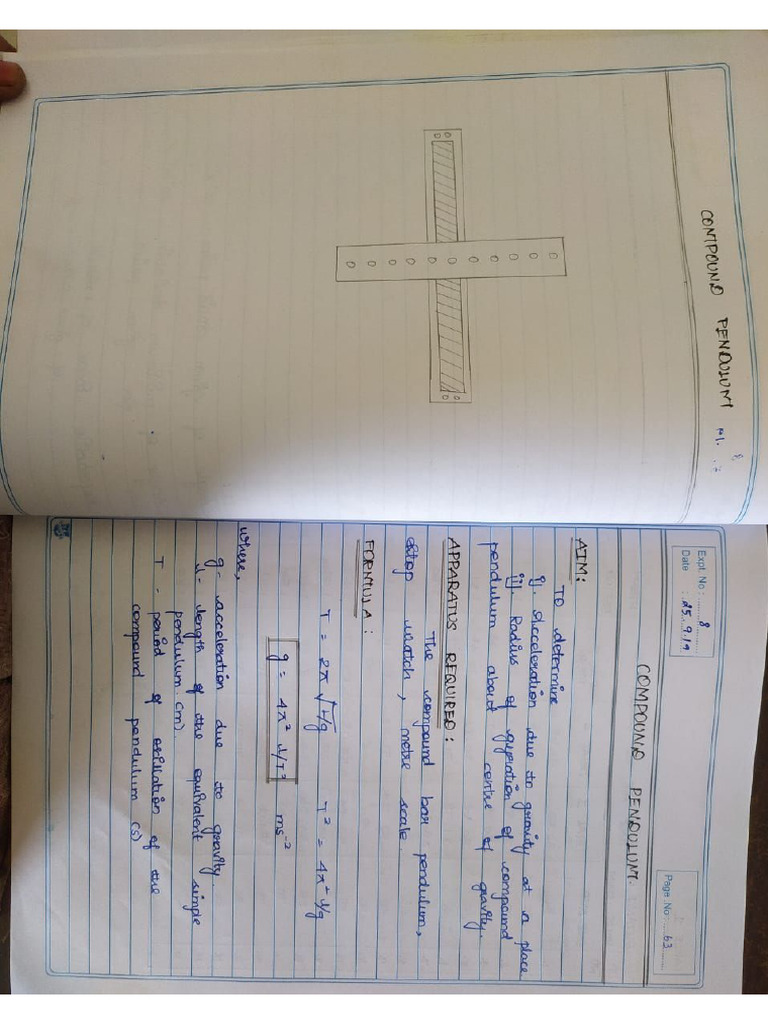 COMPOUND PENDULUM
Expt. No : 8
Date : 25.9.19
Page No : 63
COMPOUND PENDULUM.
AIM:
TO determine
i). Acceleration due to gravity at a place
ii). Radius of gyration of compound
pendulum about centre of gravity.
APPARATUS REQUIRED:
The compound bar pendulum,
stop watch, metre scale.
FORMULA:
T = 2π √L/g   T² = 4π² l/g
g = 4π² l/T²   ms⁻²
where,
g - acceleration due to gravity.
l - length of the equivalent simple
pendulum (m).
T - period of oscillation of the
compound pendulum (s)